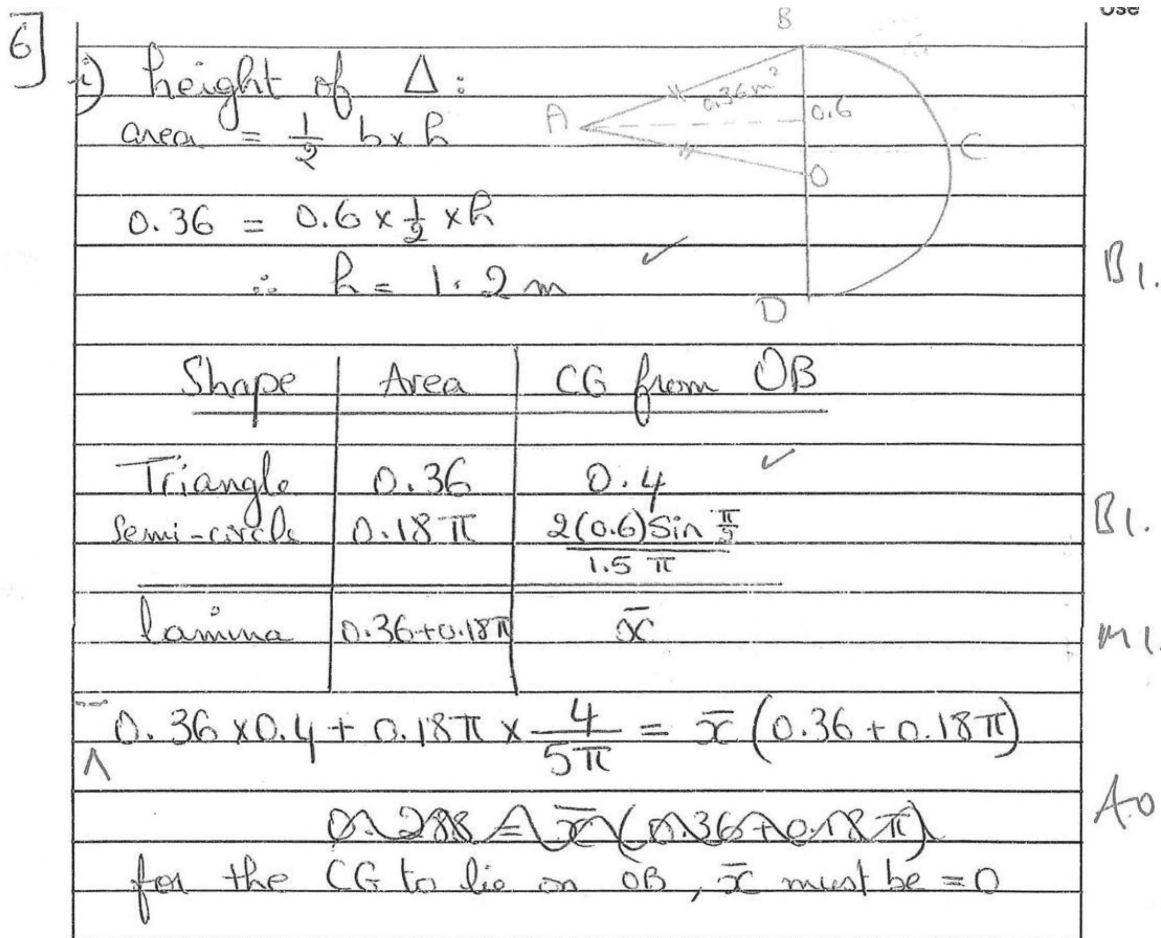 Use
6]
i) height of Δ:
area = 1/2 b x h
0.36 = 0.6 x 1/2 x h
∴ h = 1.2 m ✓ B1.
B
0.36m²
0.6
A
O
C
D
Shape | Area | CG from OB
Triangle | 0.36 | 0.4 ✓
Semi-circle | 0.18π | 2(0.6)Sin π/2 / 1.5 π B1.
lamina | 0.36+0.18π | x̄ M1.
- 0.36 x 0.4 + 0.18π x 4/5π = x̄ (0.36 + 0.18π)
^
0.288 = x̄ (0.36+0.18π) A0
for the CG to lie on OB, x̄ must be = 0